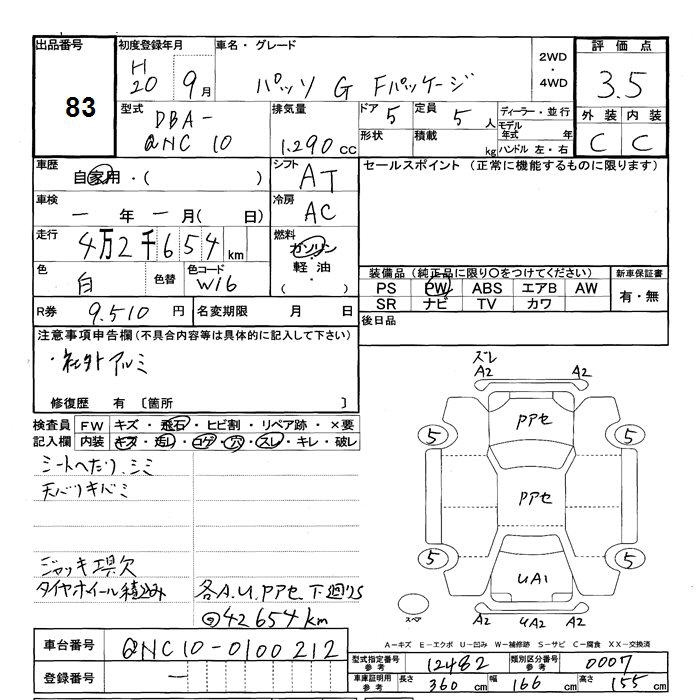 出品番号 初度登録年月 車名・グレード 2WD・4WD 評価点
83 H20 9月 パッソ G Fパッケージ 3.5
型式 DBA-QNC10 排気量 1.290cc ドア 5 定員 5人 ディーラー・並行 外装 内装
形状 積載 kg モデル年式 年 ハンドル 左・右 C C
車歴 自家用・( ) シフト AT セールスポイント (正常に機能するものに限ります)
車検 ー年ー月( 日) 冷房 AC
走行 4万2千654km 燃料 ガソリン 軽油・( )
色 白 色替 色コード W16 装備品(純正品に限り○をつけてください) 新車保証書
PS PW ABS エアB AW 有・無
SR ナビ TV カワ
R券 9.510円 名変期限 月 日 後日品
注意事項申告欄(不具合内容等は具体的に記入して下さい)
・社外アルミ
修復歴 有 〔箇所 〕
検査員記入欄 FW キズ・飛石・ヒビ割・リペア跡・×要
内装 キズ・汚レ・コゲ・穴・スレ・キレ・破レ
シートへたり、シミ
天バリキバミ
ジャッキ工具欠
タイヤホイール積込み 各A.U.PPアセ
◎42654km
ズレ
A2 A2
PPアセ
5 5
PPアセ
5 5
UA1
A2 UA2 A2
スペア
A-キズ E-エクボ U-凹み W-補修跡 S-サビ C-腐食 XX-交換済
車台番号 QNC10-0100212
型式指定番号 参考 12482 類別区分番号 参考 0007
登録番号 ー
車庫証明用 参考 長さ 360cm 幅 166cm 高さ 155cm